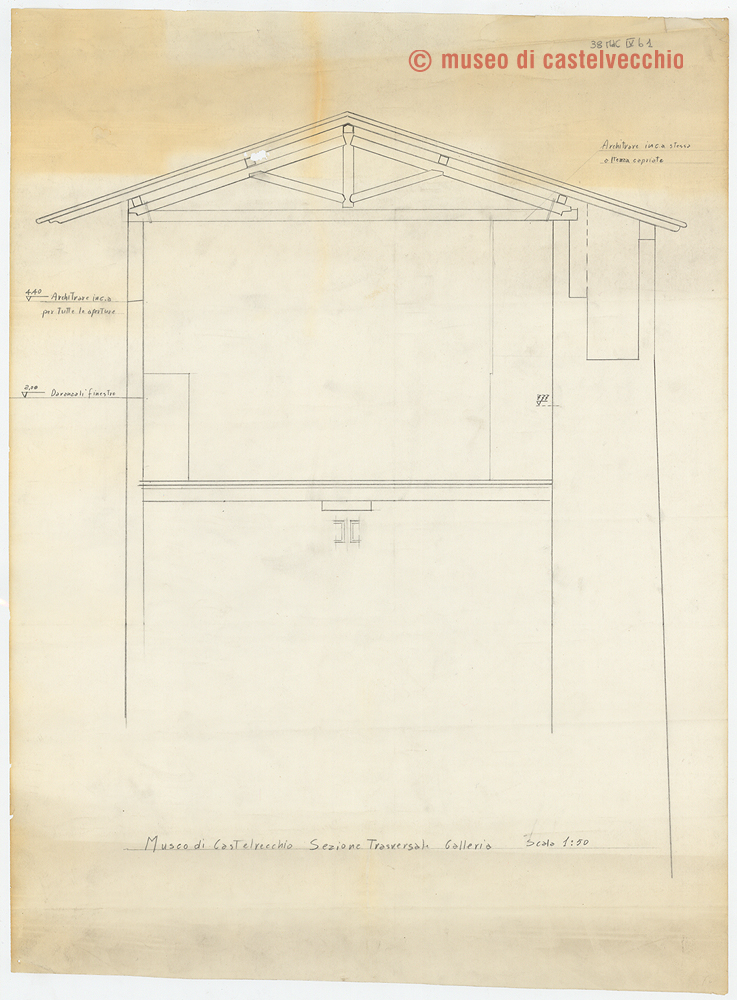 38
© museo di castelvecchio
Architrave in c.a stessa
altezza capriate
4.40
Architrave in c.a
per tutte le aperture
2,00
Davanzali finestre
Museo di Castelvecchio Sezione Trasversale Galleria Scala 1:50